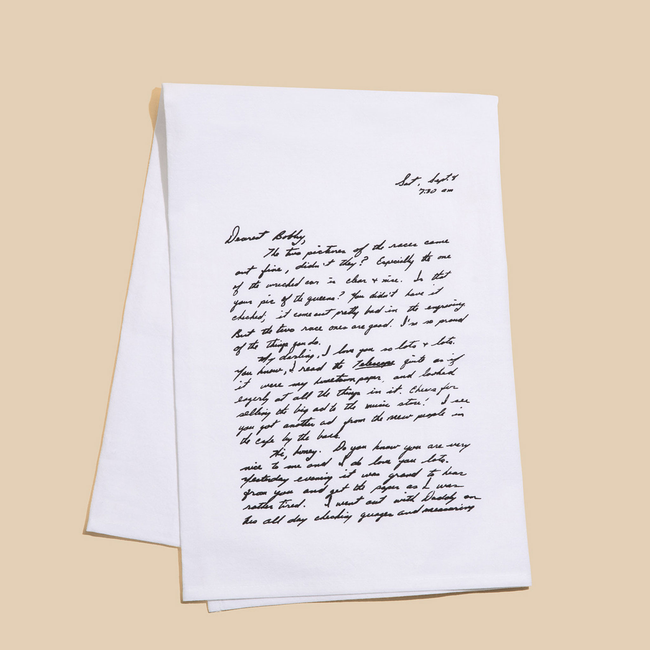 Sat, Sept. 8
7:30 am
Dearest Bobby,
The two pictures of the races came
out fine, didn't they? Especially the one
of the wrecked car is clear + nice. Is that
your pic of the queens? You didn't have it
checked, it came out pretty bad in the engraving.
But the two race ones are good. I'm so proud
of the things you do.
My darling, I love you so lots + lots.
You know, I read the Telescope just as if
it were my hometown paper, and looked
eagerly at all the things in it. Cheers for
selling the big ad to the music store! I see
you got another ad from the new people in
the cafe by the bank.
Hi, honey. Do you know you are very
nice to me and I do love you lots.
Yesterday evening it was grand to hear
from you and get the paper as I was
rather tired. I went out with Daddy on
his all day checking guages and measuring